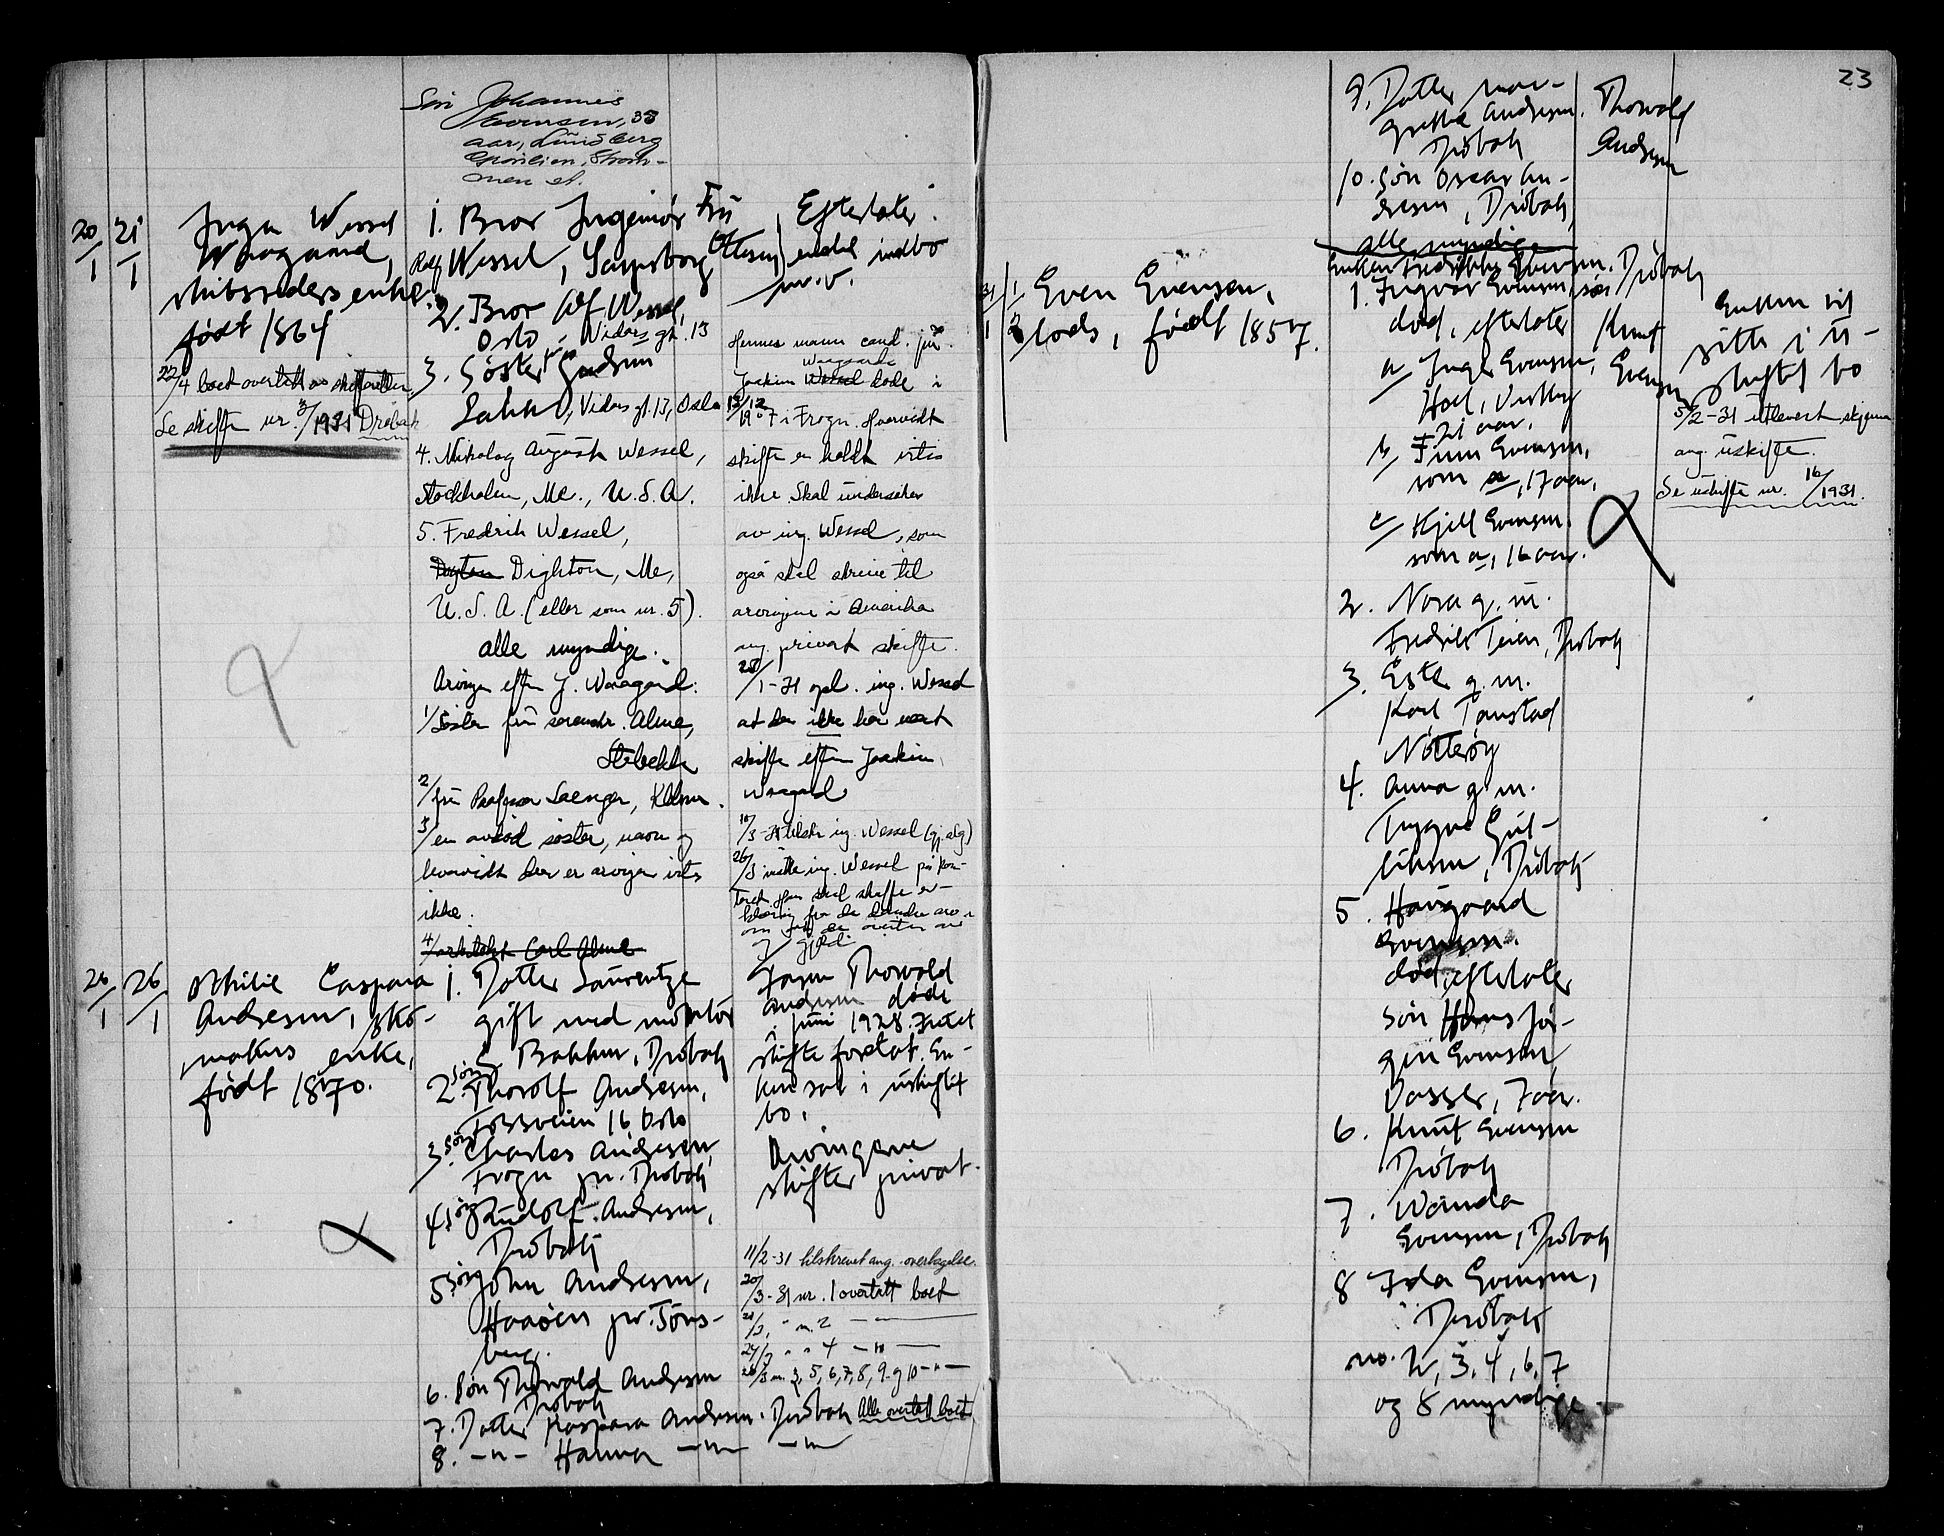 23
Søn Johannes
Evensen, 33
aar, Lundberg
Strøm-
men st.
20/1 21/1
Inga Wessel
Waagaard,
skibsreders enke.
født 1864
22/4 boet overtatt av skifteretten
Se skifte nr. 3/1931 Drøbak
1. Bror Ingeniør
Rolf Wessel, Sarpsborg
2. Bror Wessel,
Oslo, Vidars gt. 13
3. Søster frk Gudrun
Vidars gt. 13, Oslo
4. Nikolay August Wessel,
Stockholm, Me., U.S.A.
5. Fredrik Wessel,
Dighton, Me,
U.S.A. (eller som nr. 5).
alle myndige.
Arvinger efter J. Waagaard:
1/ Søster fru Alme,
Stabekk
2/ fru Professor Saenger,
3/ en avdød søster, navn og
hvorvidt der er arvinger vites
ikke.
4/ arkitekt Carl Alme
Fru
Ottesen
Efterlater
endel indbo
m.v.
Hennes mann cand. jur.
Waagaard
Joakim Wessel døde i
19/12 1907 i Frogn. Hvorvidt
skifte er holdt vites
ikke. Skal undersøkes
av ing. Wessel, som
også skal skrive til
arvingene i Amerika
ang. privat skifte.
28/1-31 opl. ing. Wessel
at der ikke har vært
skifte efter Joakim
Waagaard
10/3-31 tilskr. ing. Wessel (gj. alg)
26/3 møtte ing. Wessel på kon-
toret. Han skal skaffe er-
klæring fra de andre arv.
om at de overtar arv
og gjeld
26/1 26/1
Othilie Caspara
Andresen, sko-
makers enke,
født 1870.
1. Datter Laurentze
gift med montør
Bakken, Drøbak
2. Søn Thorolf Andresen,
Fossveien 16 Oslo
3. Søn Charles Andresen,
Frogn pr. Drøbak
4. Søn Rudolf Andresen,
Drøbak
5. Søn John Andresen,
Haaøen pr. Tøns-
berg.
6. Søn Thorvald Andresen
Drøbak
7. Datter Kaspara Andresen. Drøbak
8. -"- Hanna -"- -"-
Faren Thorvald
Andresen døde
i juni 1928. Intet
skifte foretat. En-
ken sat i uskiftet
bo.
Arvingene
skifter privat.
11/2-31 tilskrevet ang. overtagelse.
20/3-31 nr. 1 overtatt boet
21/3, " nr. 2 -"-
24/3 " " 4 -"-
28/3 nr. 3, 5, 6, 7, 8, 9 og 10 -"-
Alle overtatt boet
9. Datter Mar-
grethe Andresen.
Drøbak
10. Søn Oscar An-
dresen, Drøbak,
alle myndige
Thorvald
Andresen
31/1 1/2
Even Evensen,
lods, født 1857.
Enken Fredrikke Evensen. Drøbak
1. Ingvar Evensen,
død, efterlater
a/ Inger Evensen,
21 aar.
b/ Finn Evensen,
som a, 17 aar,
c/ Kjell Evensen.
som a, 16 aar.
2. Nora g. m.
Fredrik Teien, Drøbak
3. Ester g. m.
Karl Tanstad
Nøtterøy
4. Anna g. m.
Trygve Gul-
liksen, Drøbak
5. Haugaard
Evensen.
død, efterlater
søn Hans Jør-
gen Evensen,
Vasser, 7 aar.
6. Knut Evensen
Drøbak
7. Wanda
Evensen, Drøbak
8 Ida Evensen,
Drøbak
no. 2, 3, 4, 6, 7
og 8 myndige
søn
Knut
Evensen
Enken vil
sitte i u-
skiftet bo
5/2-31 utlevert skjema
ang. uskifte.
Se uskifte nr. 16/1931.